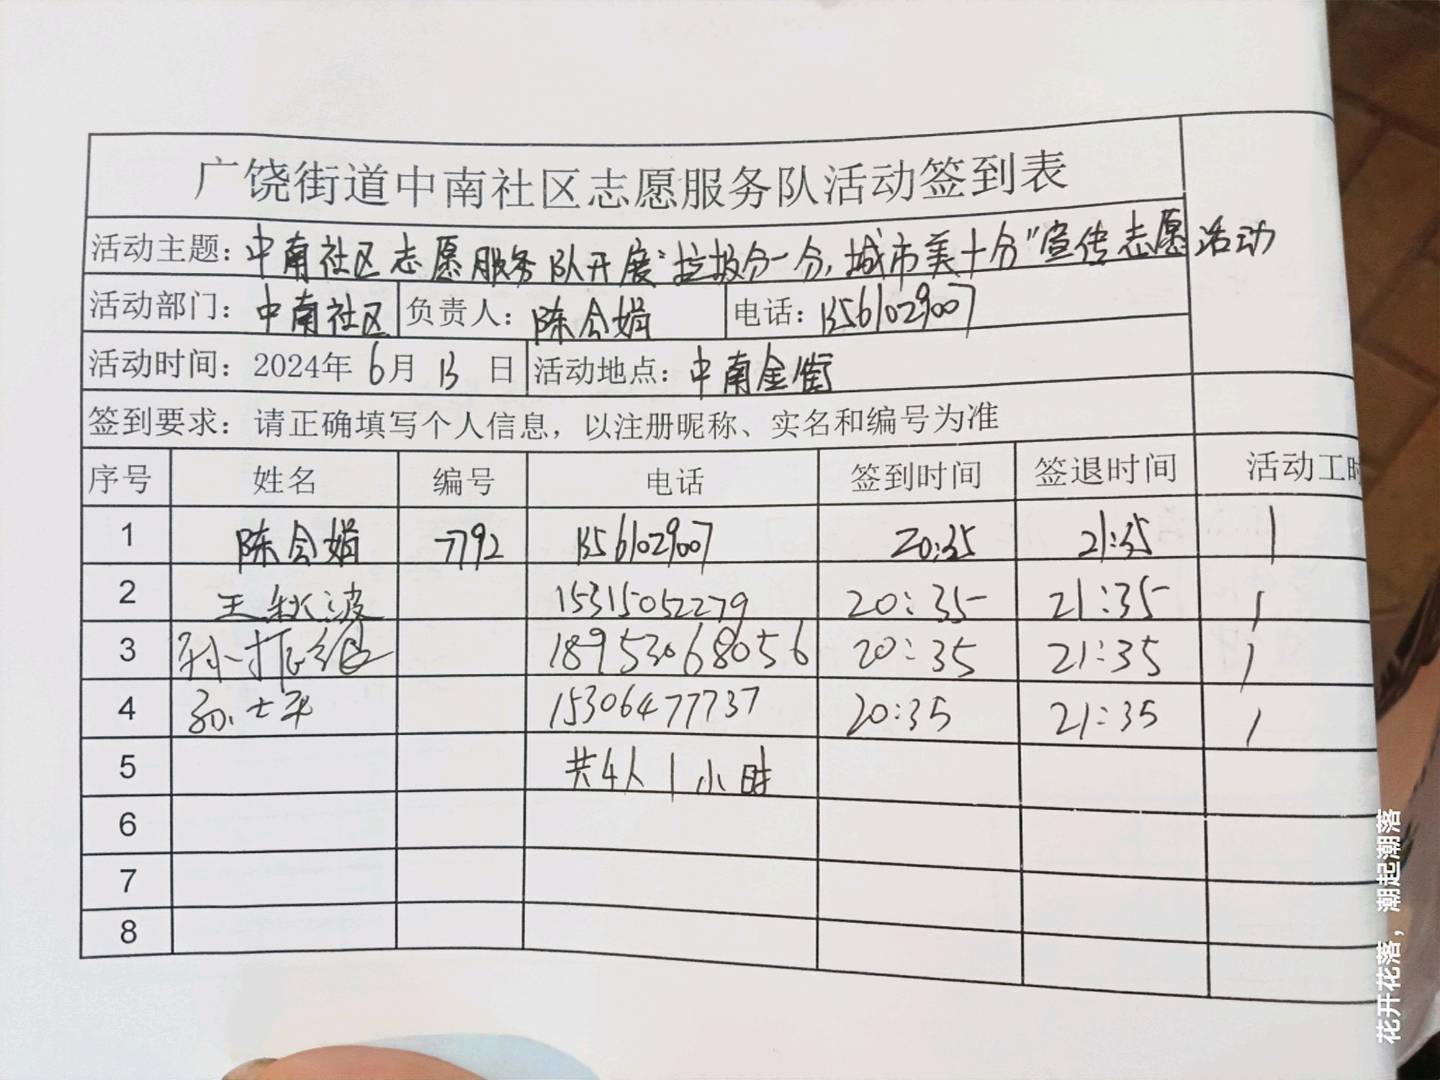 广饶街道中南社区志愿服务队活动签到表
活动主题：中南社区志愿服务队开展"垃圾分一分，城市美十分"宣传志愿活动
活动部门：中南社区 负责人：陈会娟 电话：13561029007
活动时间：2024年6月13日 活动地点：中南金街
签到要求：请正确填写个人信息，以注册昵称、实名和编号为准
序号 姓名 编号 电话 签到时间 签退时间 活动工时
1 陈会娟 7792 13561029007 20:35 21:35 1
2 王秋波 15315052279 20:35 21:35 1
3 孙振 18953068056 20:35 21:35 1
4 15306477737 20:35 21:35 1
5 共4人1小时
6
7
8
花开花落，潮起潮落